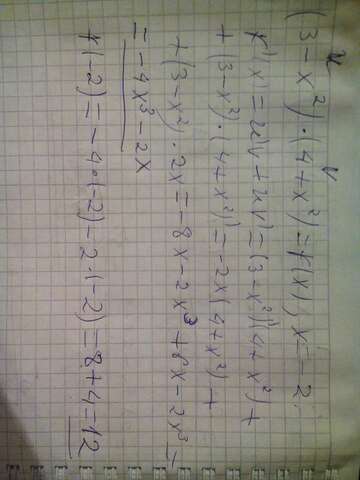 u v
(3-x²)·(4+x²)=f(x), x=-2
f'(x)=u'v+uv'=(3-x²)'(4+x²)+
+(3-x²)·(4+x²)'=-2x(4+x²)+
+(3-x²)·2x=-8x-2x³+6x-2x³=
=-4x³-2x
f'(-2)=-4·(-2)-2·(-2)=8+4=12